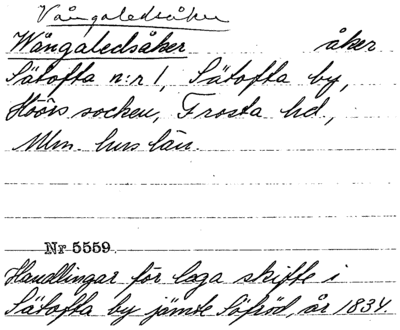 Vångaledsåker
Wångaledsåker åker
Sätofta n:r 1, Sätofta by,
Höörs socken, Frosta hd,
Mlm hus län.
Nr 5559.
Handlingar för laga skifte i
Sätofta by jämte Söfröd, år 1834.